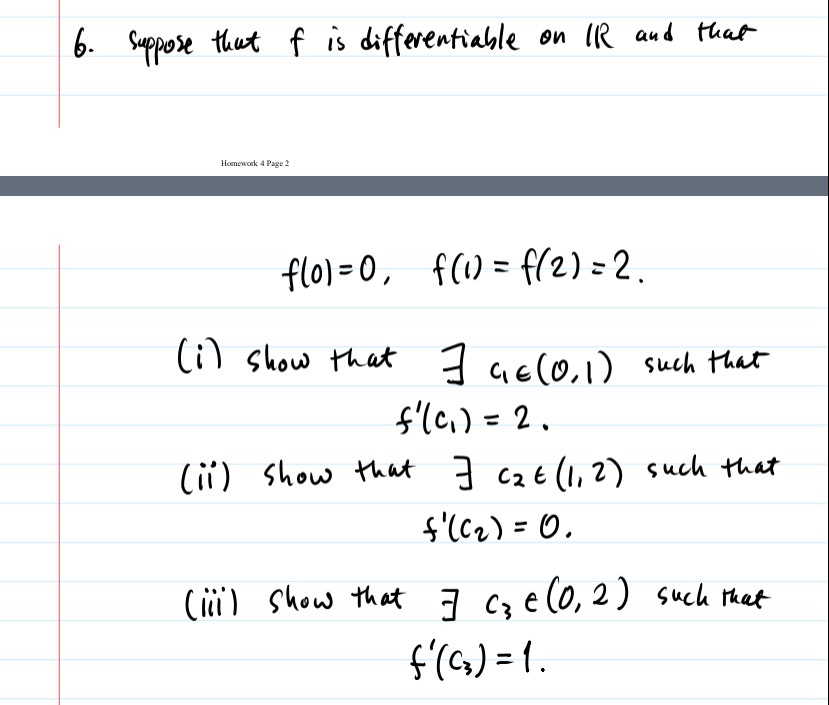 6. Suppose that f is differentiable on ℝ and that
Homework 4 Page 2
f(0)=0, f(1) = f(2) = 2.
(i) show that ∃ c₁∈(0,1) such that
f'(c₁) = 2.
(ii) show that ∃ c₂∈(1,2) such that
f'(c₂) = 0.
(iii) show that ∃ c₃∈(0,2) such that
f'(c₃) = 1.